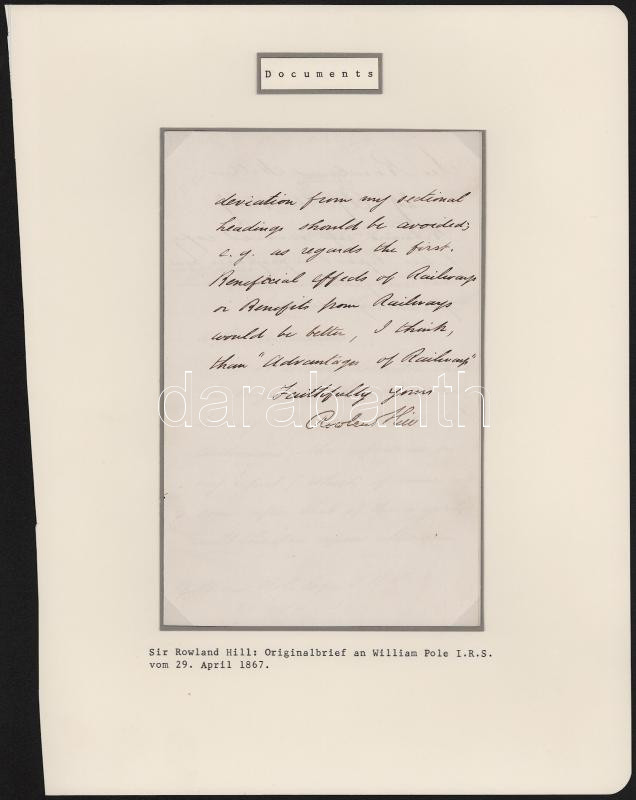 Documents
deviation from my sectional
headings should be avoided;
e.g. as regards the first.
Beneficial effects of Railways
or Benefits from Railways
would be better, I think,
than "Advantages of Railways"
Faithfully yours
Rowland Hill
darabanth
Sir Rowland Hill: Originalbrief an William Pole I.R.S.
vom 29. April 1867.